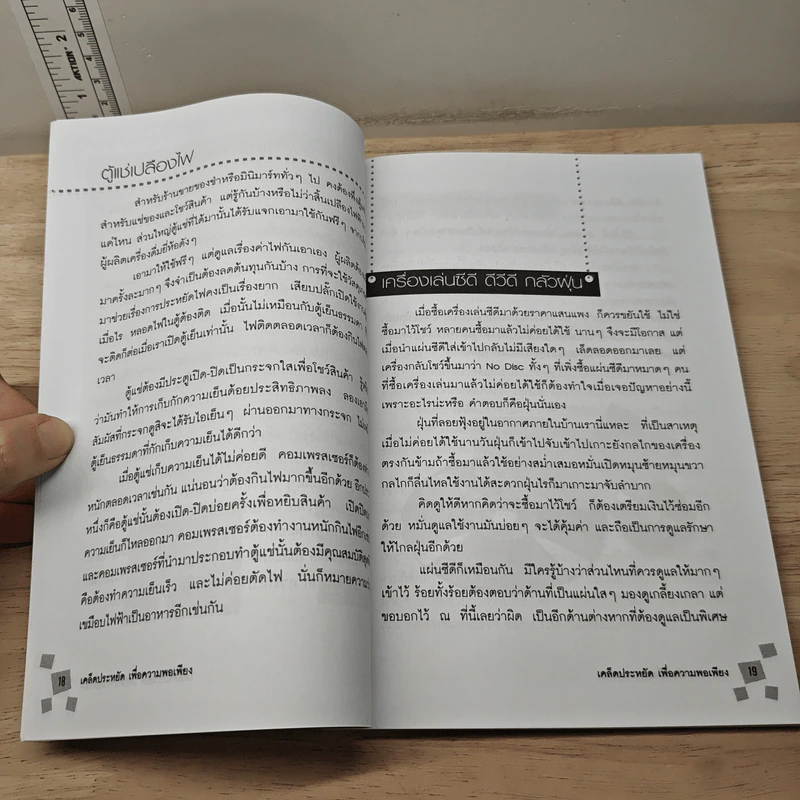 AKTION
1
2
3
4
5
6
ตู้แช่เปลืองไฟ
สำหรับร้านขายของชำหรือมินิมาร์ททั่วๆ ไป คงต้องมี
สำหรับแช่ของและโชว์สินค้า แต่รู้กันบ้างหรือไม่ว่าสิ้นเปลืองไฟ
แค่ไหน ส่วนใหญ่ตู้แช่ที่ได้มานั้นได้รับแจกเอามาใช้กันฟรีๆ จาก
ผู้ผลิตเครื่องดื่มยี่ห้อดังๆ
เอามาให้ใช้ฟรีๆ แต่ดูแลเรื่องค่าไฟกันเอาเอง ผู้ผลิตต้อง
มาครั้งละมากๆ จึงจำเป็นต้องลดต้นทุนกันบ้าง การที่จะใช้วัสดุ
มาช่วยเรื่องการประหยัดไฟคงเป็นเรื่องยาก เสียบปลั๊กเปิดใช้งาน
เมื่อไร หลอดไฟในตู้ต้องติด เมื่อนั้นไม่เหมือนกับตู้เย็นธรรมดา
จะติดก็ต่อเมื่อเราเปิดตู้เย็นเท่านั้น ไฟติดตลอดเวลาก็ต้องกินไฟ
เวลา
ตู้แช่ต้องมีประตูเปิด-ปิดเป็นกระจกใสเพื่อโชว์สินค้า
ว่ามันทำให้การเก็บกักความเย็นด้อยประสิทธิภาพลง ลอง
สัมผัสที่กระจกดูสิจะได้รับไอเย็นๆ ผ่านออกมาทางกระจก
ตู้เย็นธรรมดาที่กักเก็บความเย็นได้ดีกว่า
เมื่อตู้แช่เก็บความเย็นได้ไม่ค่อยดี คอมเพรสเซอร์ก็ต้อง
หนักตลอดเวลาเช่นกัน แน่นอนว่าต้องกินไฟมากขึ้นอีกด้วย
หนึ่งก็คือตู้แช่นั้นต้องเปิด-ปิดบ่อยครั้งเพื่อหยิบสินค้า
ความเย็นก็ไหลออกมา คอมเพรสเซอร์ต้องทำงานหนักกินไฟอีก
และคอมเพรสเซอร์ที่นำมาประกอบทำตู้แช่นั้นต้องมีคุณสมบัติ
คือต้องทำความเย็นเร็ว และไม่ค่อยตัดไฟ นั่นก็หมายความ
เขมือบไฟฟ้าเป็นอาหารอีกเช่นกัน
18 เคล็ดประหยัด เพื่อความพอเพียง
เครื่องเล่นซีดี ดีวีดี กลัวฝุ่น
เมื่อซื้อเครื่องเล่นซีดีมาด้วยราคาแสนแพง ก็ควรขยันใช้ ไม่ใช่
ซื้อมาไว้โชว์ หลายคนซื้อมาแล้วไม่ค่อยได้ใช้ นานๆ จึงจะมีโอกาส แต่
เมื่อนำแผ่นซีดีใส่เข้าไปกลับไม่มีเสียงใดๆ เล็ดลอดออกมาเลย แต่
เครื่องกลับโชว์ขึ้นมาว่า No Disc ทั้งๆ ที่เพิ่งซื้อแผ่นซีดีมาหมาดๆ คน
ที่ซื้อเครื่องเล่นมาแล้วไม่ค่อยได้ใช้ก็ต้องทำใจเมื่อเจอปัญหาอย่างนี้
เพราะอะไรน่ะหรือ คำตอบก็คือฝุ่นนั่นเอง
ฝุ่นที่ลอยฟุ้งอยู่ในอากาศภายในบ้านเรานี่แหละ ที่เป็นสาเหตุ
เมื่อไม่ค่อยได้ใช้นานวันฝุ่นก็เข้าไปจับเข้าไปเกาะยังกลไกของเครื่อง
ตรงกันข้ามถ้าซื้อมาแล้วใช้อย่างสม่ำเสมอหมั่นเปิดหมุนซ้ายหมุนขวา
กลไกก็ลื่นไหลใช้งานได้สะดวกฝุ่นไรก็มาเกาะมาจับลำบาก
คิดดูให้ดีหากคิดว่าจะซื้อมาไว้โชว์ ก็ต้องเตรียมเงินไว้ซ่อมอีก
ด้วย หมั่นดูแลใช้งานมันบ่อยๆ จะได้คุ้มค่า และถือเป็นการดูแลรักษา
ให้ไกลฝุ่นอีกด้วย
แผ่นซีดีก็เหมือนกัน มีใครรู้บ้างว่าส่วนไหนที่ควรดูแลให้มากๆ
เข้าไว้ ร้อยทั้งร้อยต้องตอบว่าด้านที่เป็นแผ่นใสๆ มองดูเกลี้ยงเกลา แต่
ขอบอกไว้ ณ ที่นี้เลยว่าผิด เป็นอีกด้านต่างหากที่ต้องดูแลเป็นพิเศษ
เคล็ดประหยัด เพื่อความพอเพียง 19